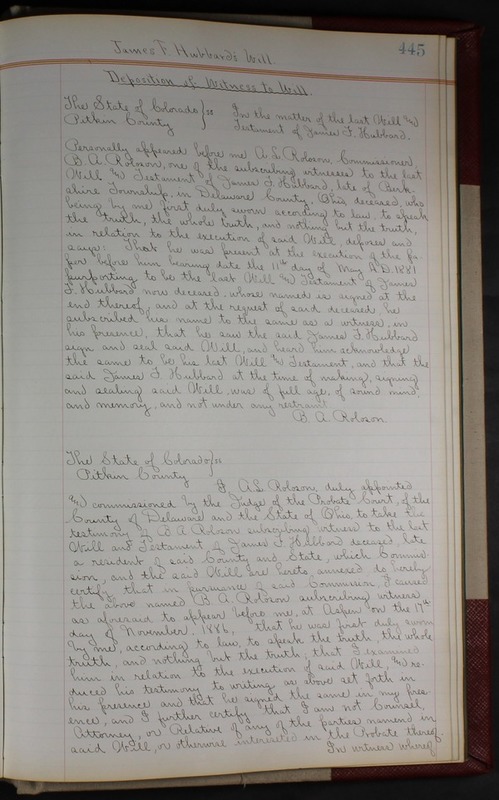 445
James F. Hubbard's Will.
Deposition of Witness to Will.
The State of Colorado } ss In the matter of the last Will &
Pitkin County Testament of James F. Hubbard.
Personally appeared before me A. L. Robson, Commissioner,
B. A. Robson, one of the subscribing witnesses to the last
Will & Testament of James F. Hubbard, late of Berk-
shire Township, in Delaware County, Ohio, deceased, who
being by me first duly sworn according to law, to speak
the truth, the whole truth, and nothing but the truth,
in relation to the execution of said Will, deposes and
says: That he was present at the execution of the pa-
per before him bearing date the 11th day of May A.D. 1881
purporting to be the last Will & Testament of James
F. Hubbard now deceased, whose named is signed at the
end thereof, and at the request of said deceased, he
subscribed his name to the same as a witness, in
his presence, that he saw the said James F. Hubbard
sign and seal said Will, and heard him acknowledge
the same to be his last Will & Testament, and that the
said James F. Hubbard at the time of making, signing
and sealing said Will, was of full age, of sound mind,
and memory, and not under any restraint.
B. A. Robson.
The State of Colorado } ss
Pitkin County
I A. L. Robson, duly appointed
& commissioned by the Judge of the Probate Court, of the
County of Delaware and the State of Ohio to take the
testimony of B. A. Robson subscribing witness to the last
Will and Testament of James F. Hubbard deceased, late
a resident of said County and State, which Commis-
sion, and the said Will are hereto, annexed do hereby
certify, that in pursuance of said Commission, I caused
the above named B. A. Robson subscribing witness
as aforesaid to appear before me, at Aspen on the 17th
day of November 1886, that he was first duly sworn
by me, according to law, to speak the truth, the whole
truth, and nothing but the truth; that I examined
him in relation to the execution of said Will, & re-
duced his testimony to writing, as above set forth in
his presence and that he signed the same in my pres-
ence, and I further certify that I am not Counsel,
Attorney, or Relative of any of the parties named in
said Will, or otherwise interested in the Probate thereof.
In witness whereof